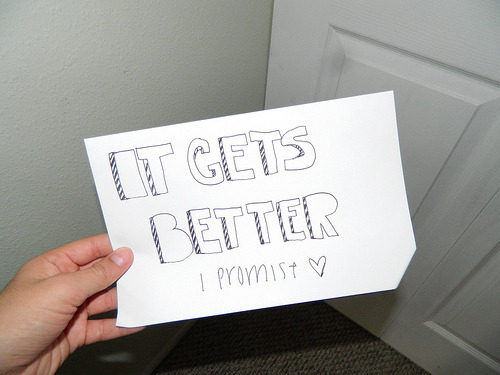 IT GETS
BETTER
I PROMISE ♡